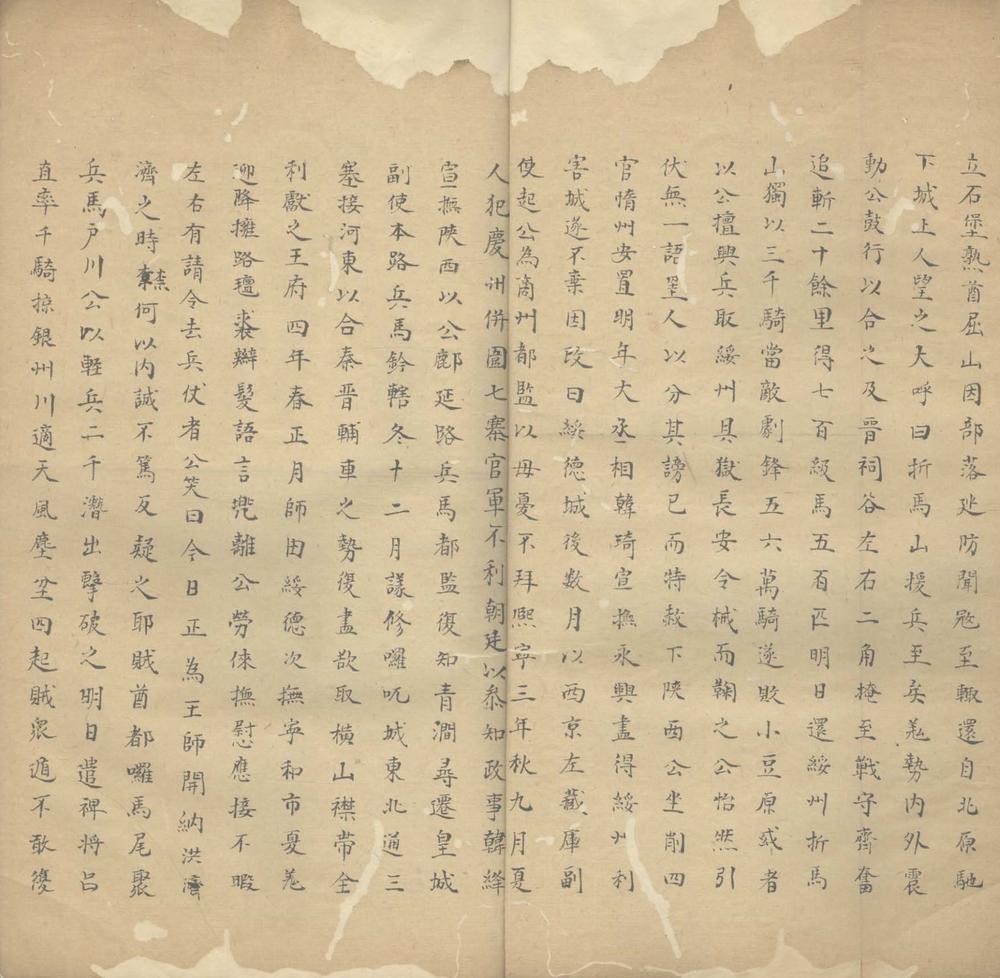 立石堡熟酋屈山因部落逃防聞公至輙還自北原馳
下城上人望之大呼曰折馬山援兵至矣羗勢内外震
動公鼓行以合之及晋祠谷左右二角掩至戰守齊奮
追斬二十餘里得七百級馬五百匹明日還綏州折馬
山獨以三千騎當敵劇鋒五六萬騎遂敗小豆原或者
以公擅興兵取綏州具獄長安令械而鞫之公怡然引
伏無一語墨人以分其謗已而特赦下陜西公坐削四
官惰州安置明年大丞相韓琦宣撫永興盡得綏州利
害城遂不棄因改曰綏德城後數月以西京左藏庫副
使起公為商州都監以母憂不拜熙寧三年秋九月夏
人犯慶州併圍七寨官軍不利朝廷以叅知政事韓絳
宣撫陜西以公鄜延路兵馬都監復知青澗尋遷皇城
副使本路兵馬鈐轄冬十二月謀修囉兀城東北通三
塞接河東以合秦晉輔車之勢復盡欲取橫山襟帶全
利獻之王府四年春正月師由綏德次撫寧和市戞羗
迎降擁路氊裘辮髮語言兜離公勞倈撫慰應接不暇
左右有請令去兵仗者公笑曰今日正為王師開納洪濟
濟之時柰何以内誠不篤反疑之耶賊酋都囉馬尾聚
兵馬戶川公以輕兵二千潛出擊破之明日遣裨将吕
直率千騎掠銀州川適天風塵坌四起賊衆遁不敢復